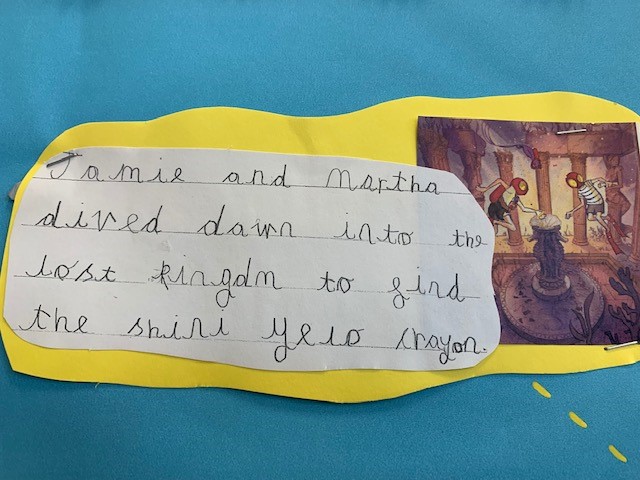 Jamie and Martha
dived dawn into the
lost kingdm to find
the shini yelo crayon.